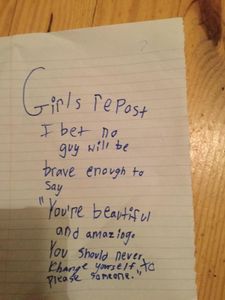 Girls repost
I bet no
guy will be
brave enough to
say
"You're beautiful
and amazing.
You should never
change yourself to
please someone."